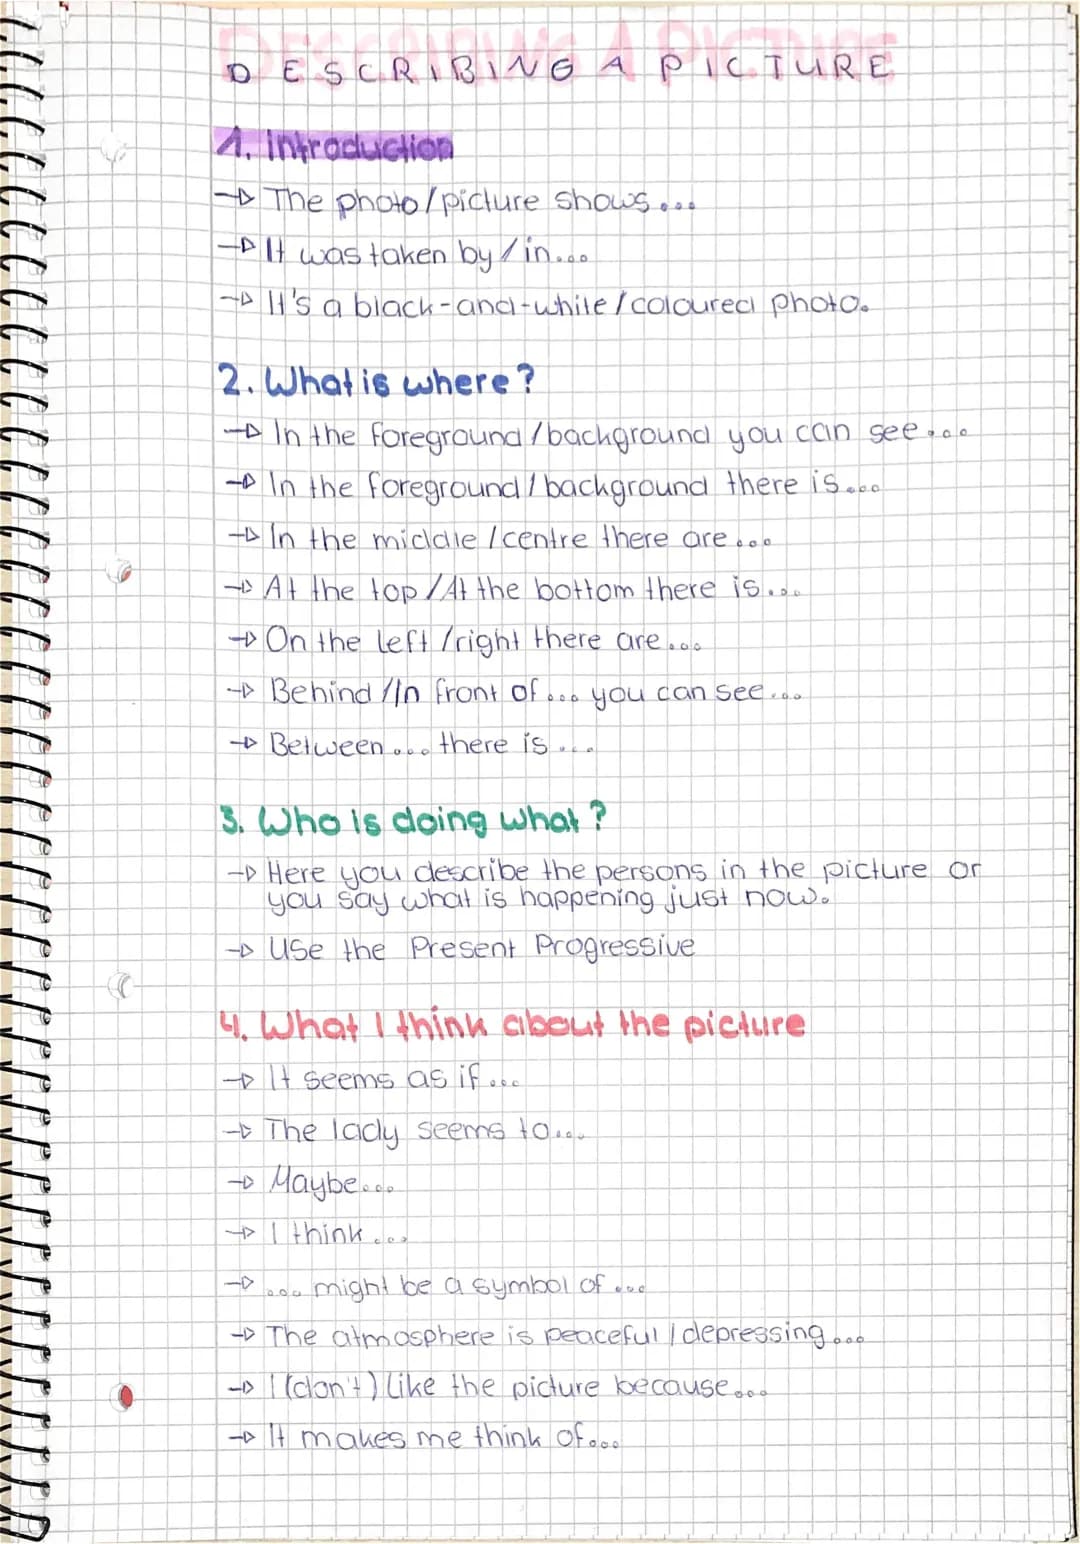 DESCRIBING A PICTURE
1. Introduction
→ The photo/picture shows...
→ It was taken by/in...
→ It's a black-and-white/coloured photo.
2. What is where?
→ In the foreground/background you can see...
→ In the foreground/background there is...
→ In the middle/centre there are...
→ At the top/At the bottom there is...
→ On the left/right there are...
→ Behind/In front of... you can see...
→ Between... there is...
3. Who is doing what?
→ Here you describe the persons in the picture or
you say what is happening just now.
→ Use the Present Progressive
4. What I think about the picture
→ It seems as if...
→ The lady seems to...
→ Maybe...
→ I think...
→ ... might be a symbol of...
→ The atmosphere is peaceful/depressing...
→ I (don't) like the picture because...
→ It makes me think of...